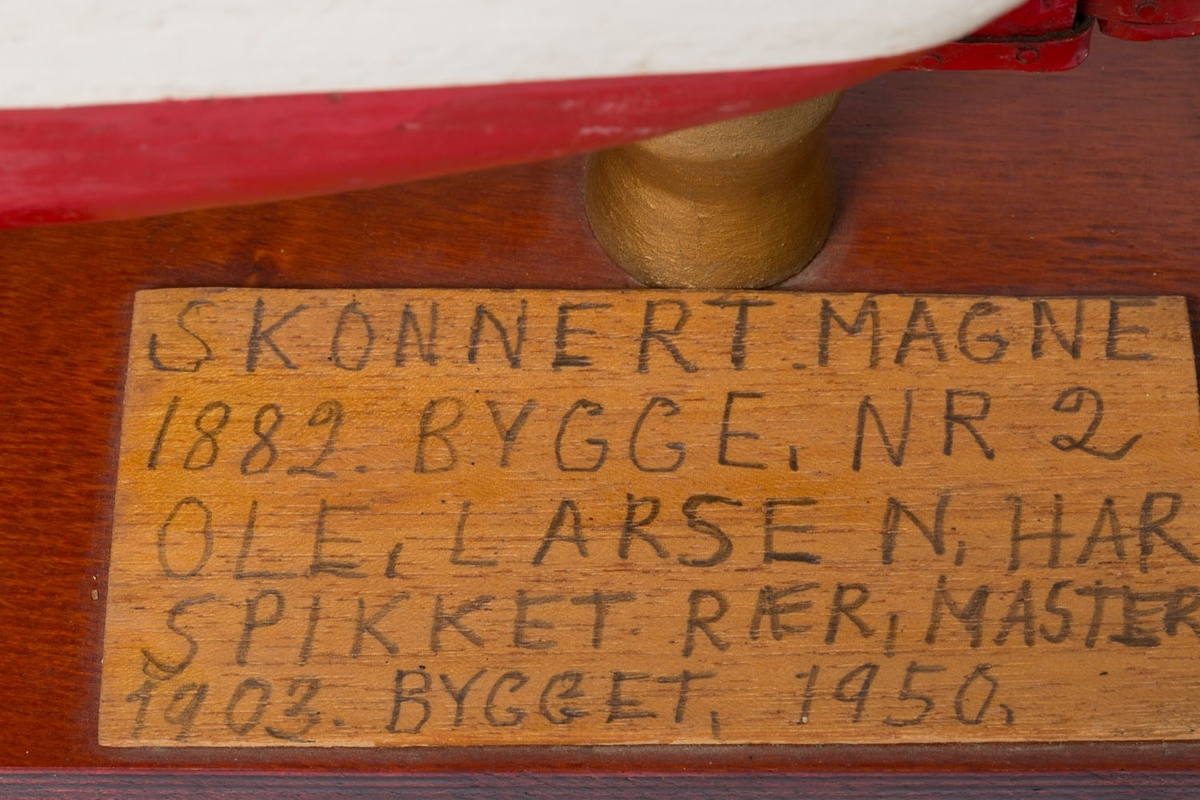 SKONNERT. MAGNE
1882. BYGGE, NR 2
OLE, LARSEN, HAR
SPIKKET. RÆR, MASTER
1903. BYGGET, 1950,